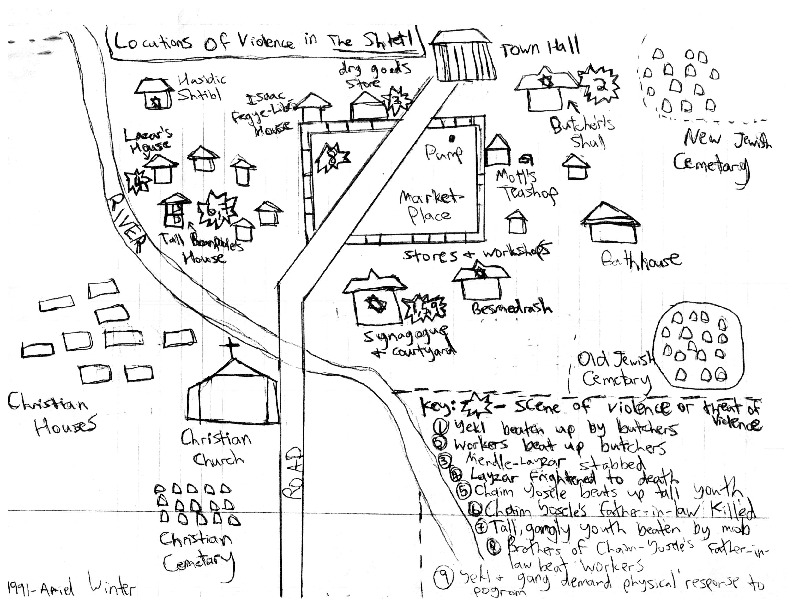 Locations Of Violence in The Shtetl
Town Hall
dry goods
store
Hasidic
Shtibl
Isaac
Fegge-Libe
House
3
2
Butcher's
Shul
New Jewish
Cemetary
Lazar's
House
4
8
Pump
Motl's
Teashop
Market-
Place
RIVER
Tall
House
stores & workshops
Bathhouse
Synagogue
& courtyard
Besmedrash
Old Jewish
Cemetary
Christian
Houses
Christian
Church
ROAD
Christian
Cemetary
Key: - Scene of violence or threat of
violence
① Yekl beaten up by butchers
② Workers beat up butchers
③ Mendle-Layzar stabbed
④ Layzar frightened to death
⑤ Chaim Yosele beats up tall youth
⑥ Chaim Yosele's father-in-law killed
⑦ Tall, gangly youth beaten by mob
⑧ Brothers of Chaim-Yosele's father-in-
law beat workers
⑨ Yekl & gang demand physical response to
pogrom
1991-Ariel Winter